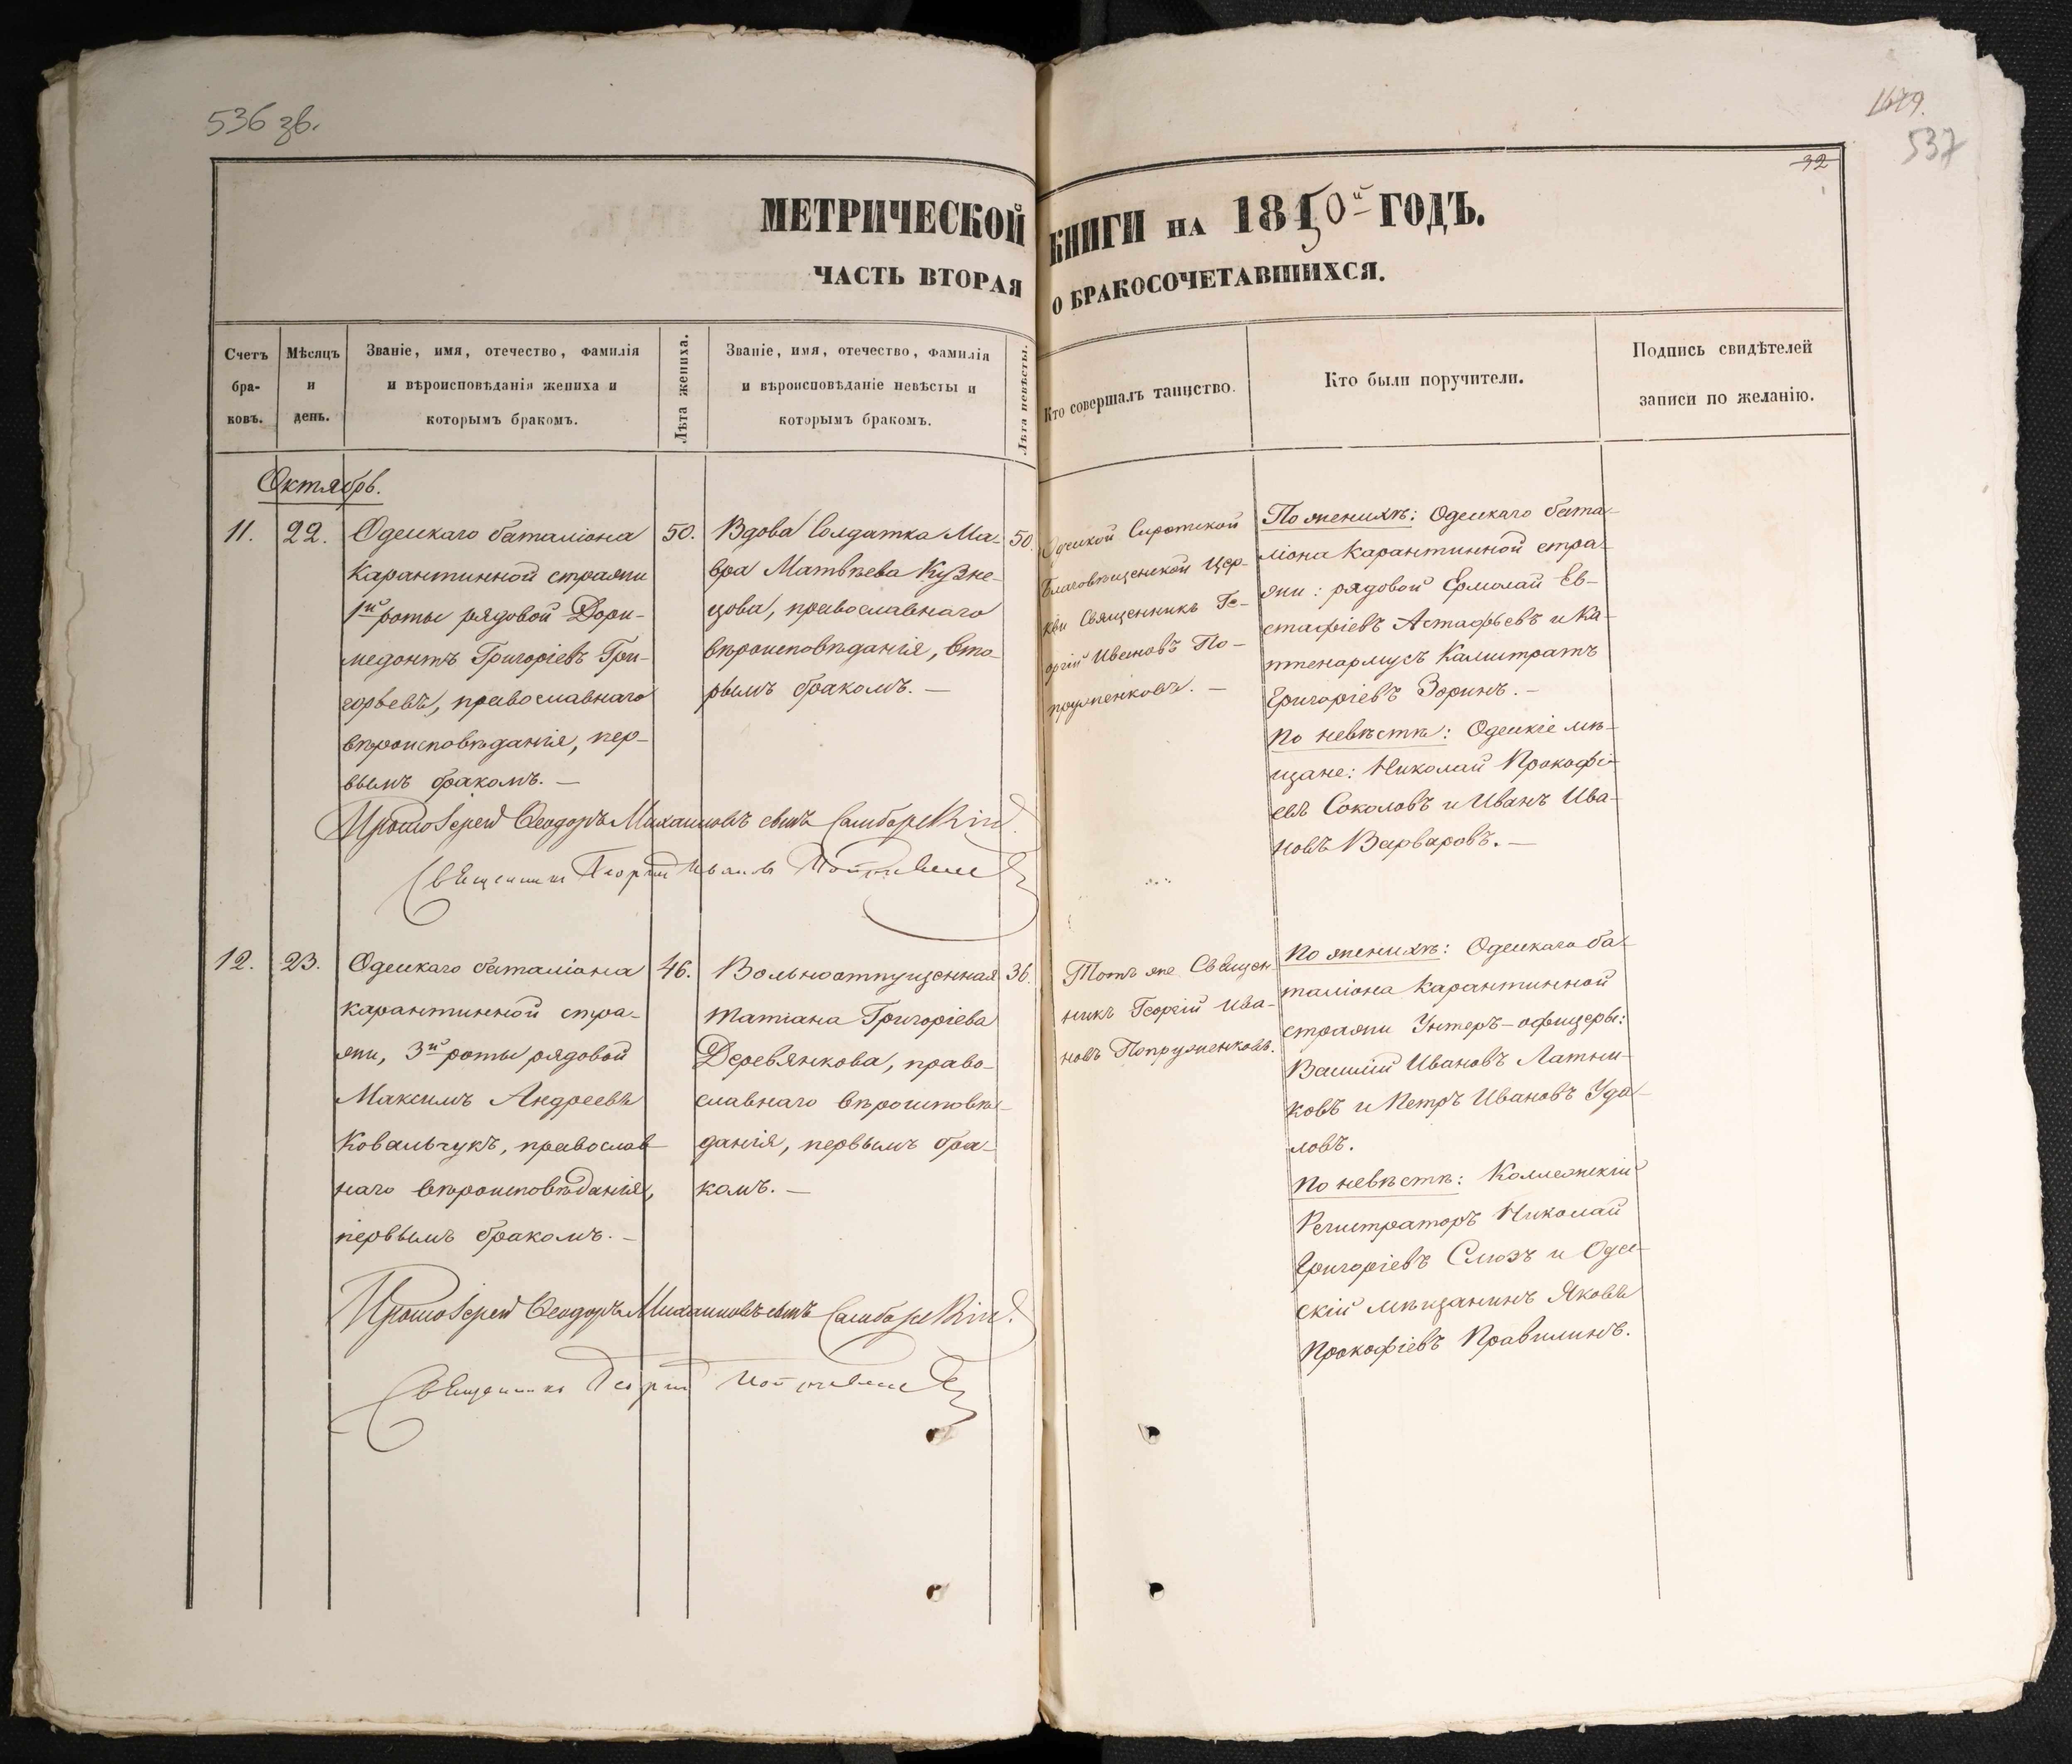 536 зв.
1679.
537
32
МЕТРИЧЕСКОЙ КНИГИ НА 1850й ГОДЪ.
ЧАСТЬ ВТОРАЯ О БРАКОСОЧЕТАВШИХСЯ.
Счетъ бра-ковъ.
Мѣсяцъ и день.
Званіе, имя, отечество, фамилія
и вѣроисповѣданія жениха и
которымъ бракомъ.
Лѣта жениха.
Званіе, имя, отечество, фамилія
и вѣроисповѣданіе невѣсты и
которымъ бракомъ.
Лѣта невѣсты.
Кто совершалъ таинство.
Кто были поручители.
Подпись свидѣтелей
записи по желанію.
Октябрь.
11.
22.
Одесскаго баталіона
карантинной стражи
1й роты рядовой Дори-
медонтъ Григоріевъ Гри-
горьевъ, православнаго
вѣроисповѣданія, пер-
вымъ бракомъ. —
50.
Вдова Солдатка Ма-
вра Матвѣева Кузне-
цова, православнаго
вѣроисповѣданія, вто-
рымъ бракомъ. —
50.
Одесской Сиротской
Благовѣщенской Цер-
кви Священникъ Ге-
оргій Ивановъ По-
пруженковъ. —
По женихѣ: Одесскаго бата-
ліона карантинной стра-
жи: рядовой Ермолай Ев-
стафіевъ Астафьевъ и Ка-
птенармусъ Калистратъ
Григоріевъ Зоринъ. —
По невѣстѣ: Одесскіе мѣ-
щане: Николай Прокофі-
евъ Соколовъ и Иванъ Ива-
новъ Варваровъ. —
Протоіерей Ѳеодоръ Михаиловъ сынъ Самборскій.
Священникъ Георгій Ивановъ
12.
23.
Одесскаго баталіона
карантинной стра-
жи, 3й роты рядовой
Максимъ Андреевъ
Ковальчукъ, православ-
наго вѣроисповѣданія,
первымъ бракомъ. —
46.
Вольноотпущенная
Татіана Григоріева
Деревянкова, право-
славнаго вѣроисповѣ-
данія, первымъ бра-
комъ. —
36.
Тотъ же Священ-
никъ Георгій Ива-
новъ Попруженковъ.
По женихѣ: Одесскаго ба-
таліона карантинной
стражи Унтеръ-офицеры:
Василій Ивановъ Латни-
ковъ и Петръ Ивановъ Уда-
ловъ.
По невѣстѣ: Коллежскій
Регистраторъ Николай
Григоріевъ Слюзъ и Одес-
скій мѣщанинъ Яковъ
Прокофіевъ Правилинъ.
Протоіерей Ѳеодоръ Михаиловъ сынъ Самборскій.
Священникъ Георгій